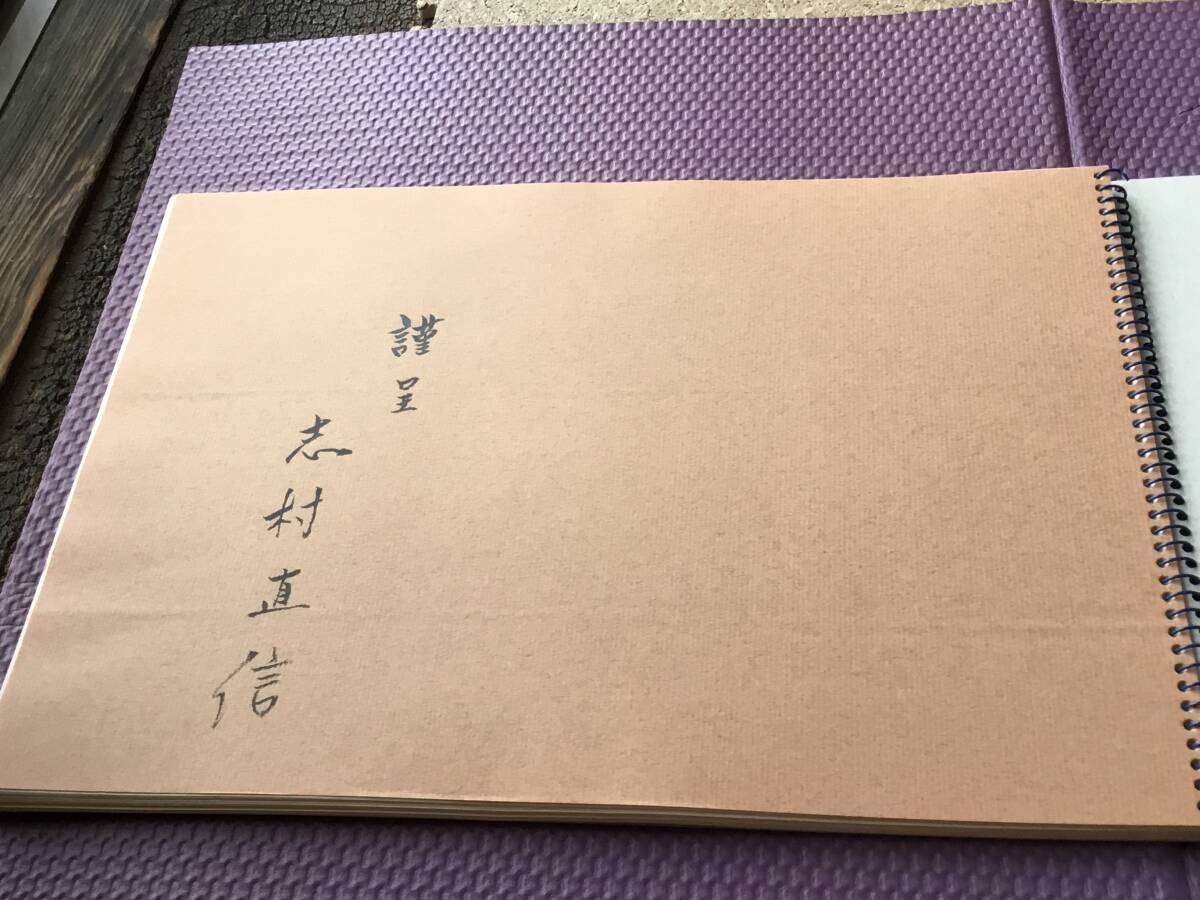 謹呈
志村直信